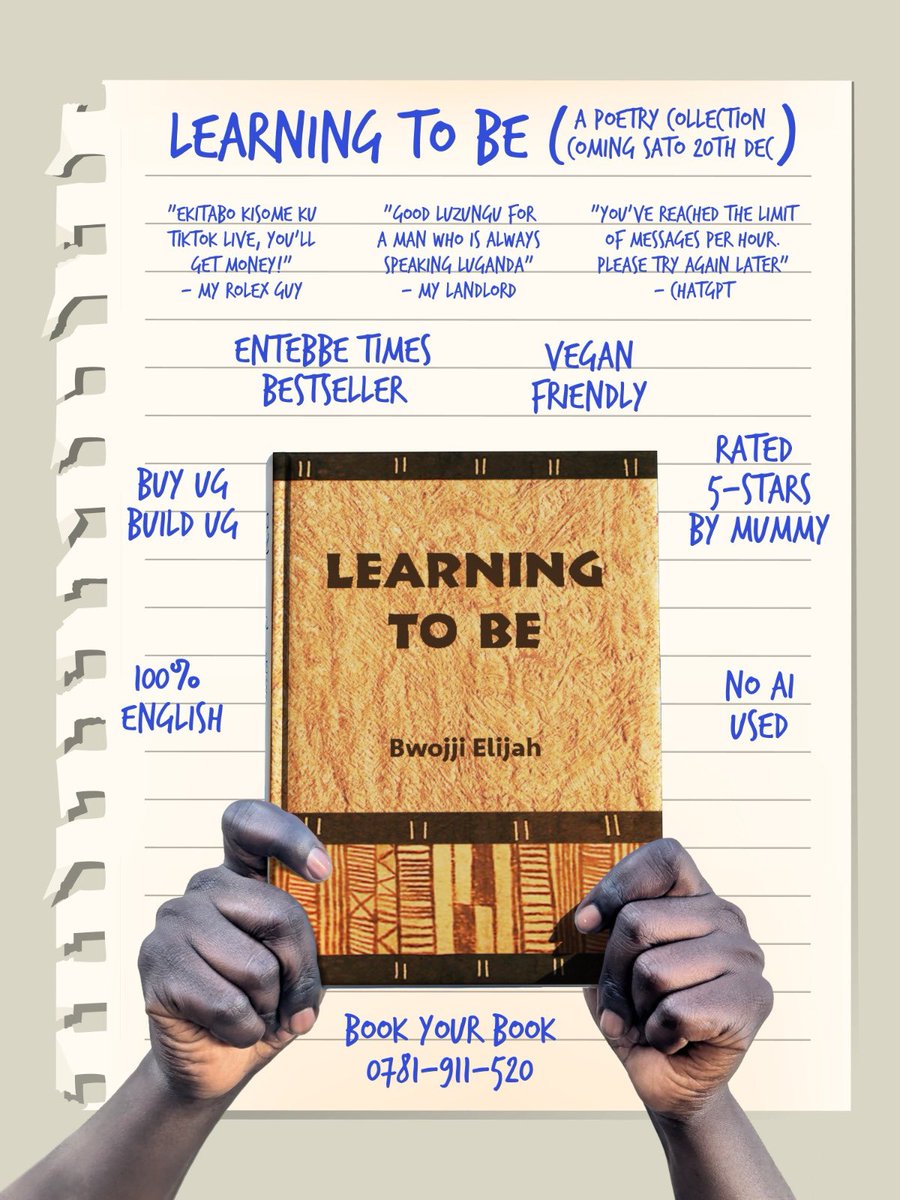 LEARNING TO BE (A POETRY COLLECTION
COMING SATO 20TH DEC)
"EKITABO KISOME KU
TIKTOK LIVE, YOU'LL
GET MONEY!"
- MY ROLEX GUY
"GOOD LUZUNGU FOR
A MAN WHO IS ALWAYS
SPEAKING LUGANDA"
- MY LANDLORD
"YOU'VE REACHED THE LIMIT
OF MESSAGES PER HOUR.
PLEASE TRY AGAIN LATER"
- CHATGPT
ENTEBBE TIMES
BESTSELLER
VEGAN
FRIENDLY
BUY UG
BUILD UG
RATED
5-STARS
BY MUMMY
LEARNING
TO BE
Bwojji Elijah
100%
ENGLISH
NO AI
USED
BOOK YOUR BOOK
0781-911-520